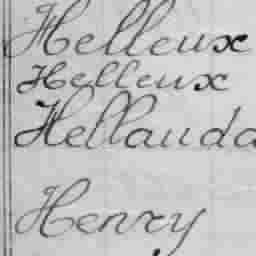 Helleux
Helleux
Hellauda
Henry